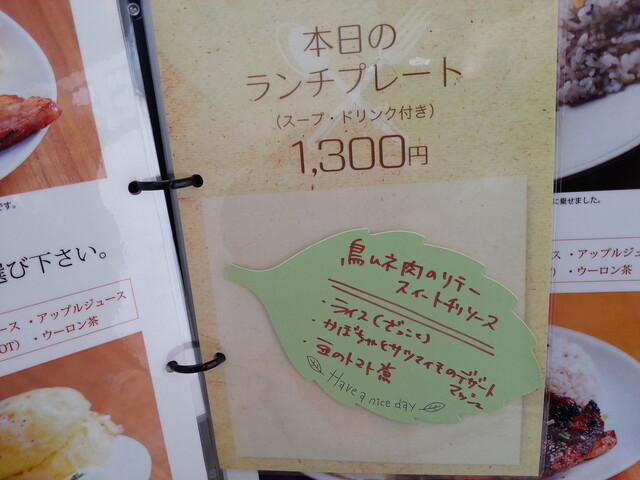 本日の
ランチプレート
（スープ・ドリンク付き）
1,300円
鳥ムネ肉のソテー
スイートチリソース
・ライス(ざこく)
・かぼちゃとサツマイモのデザート
マッシュ
・豆のトマト煮
Have a nice day
です。
び下さい。
ース ・アップルジュース
OT） ・ウーロン茶
に乗せました。
ス ・アップルジ
・ウーロン茶